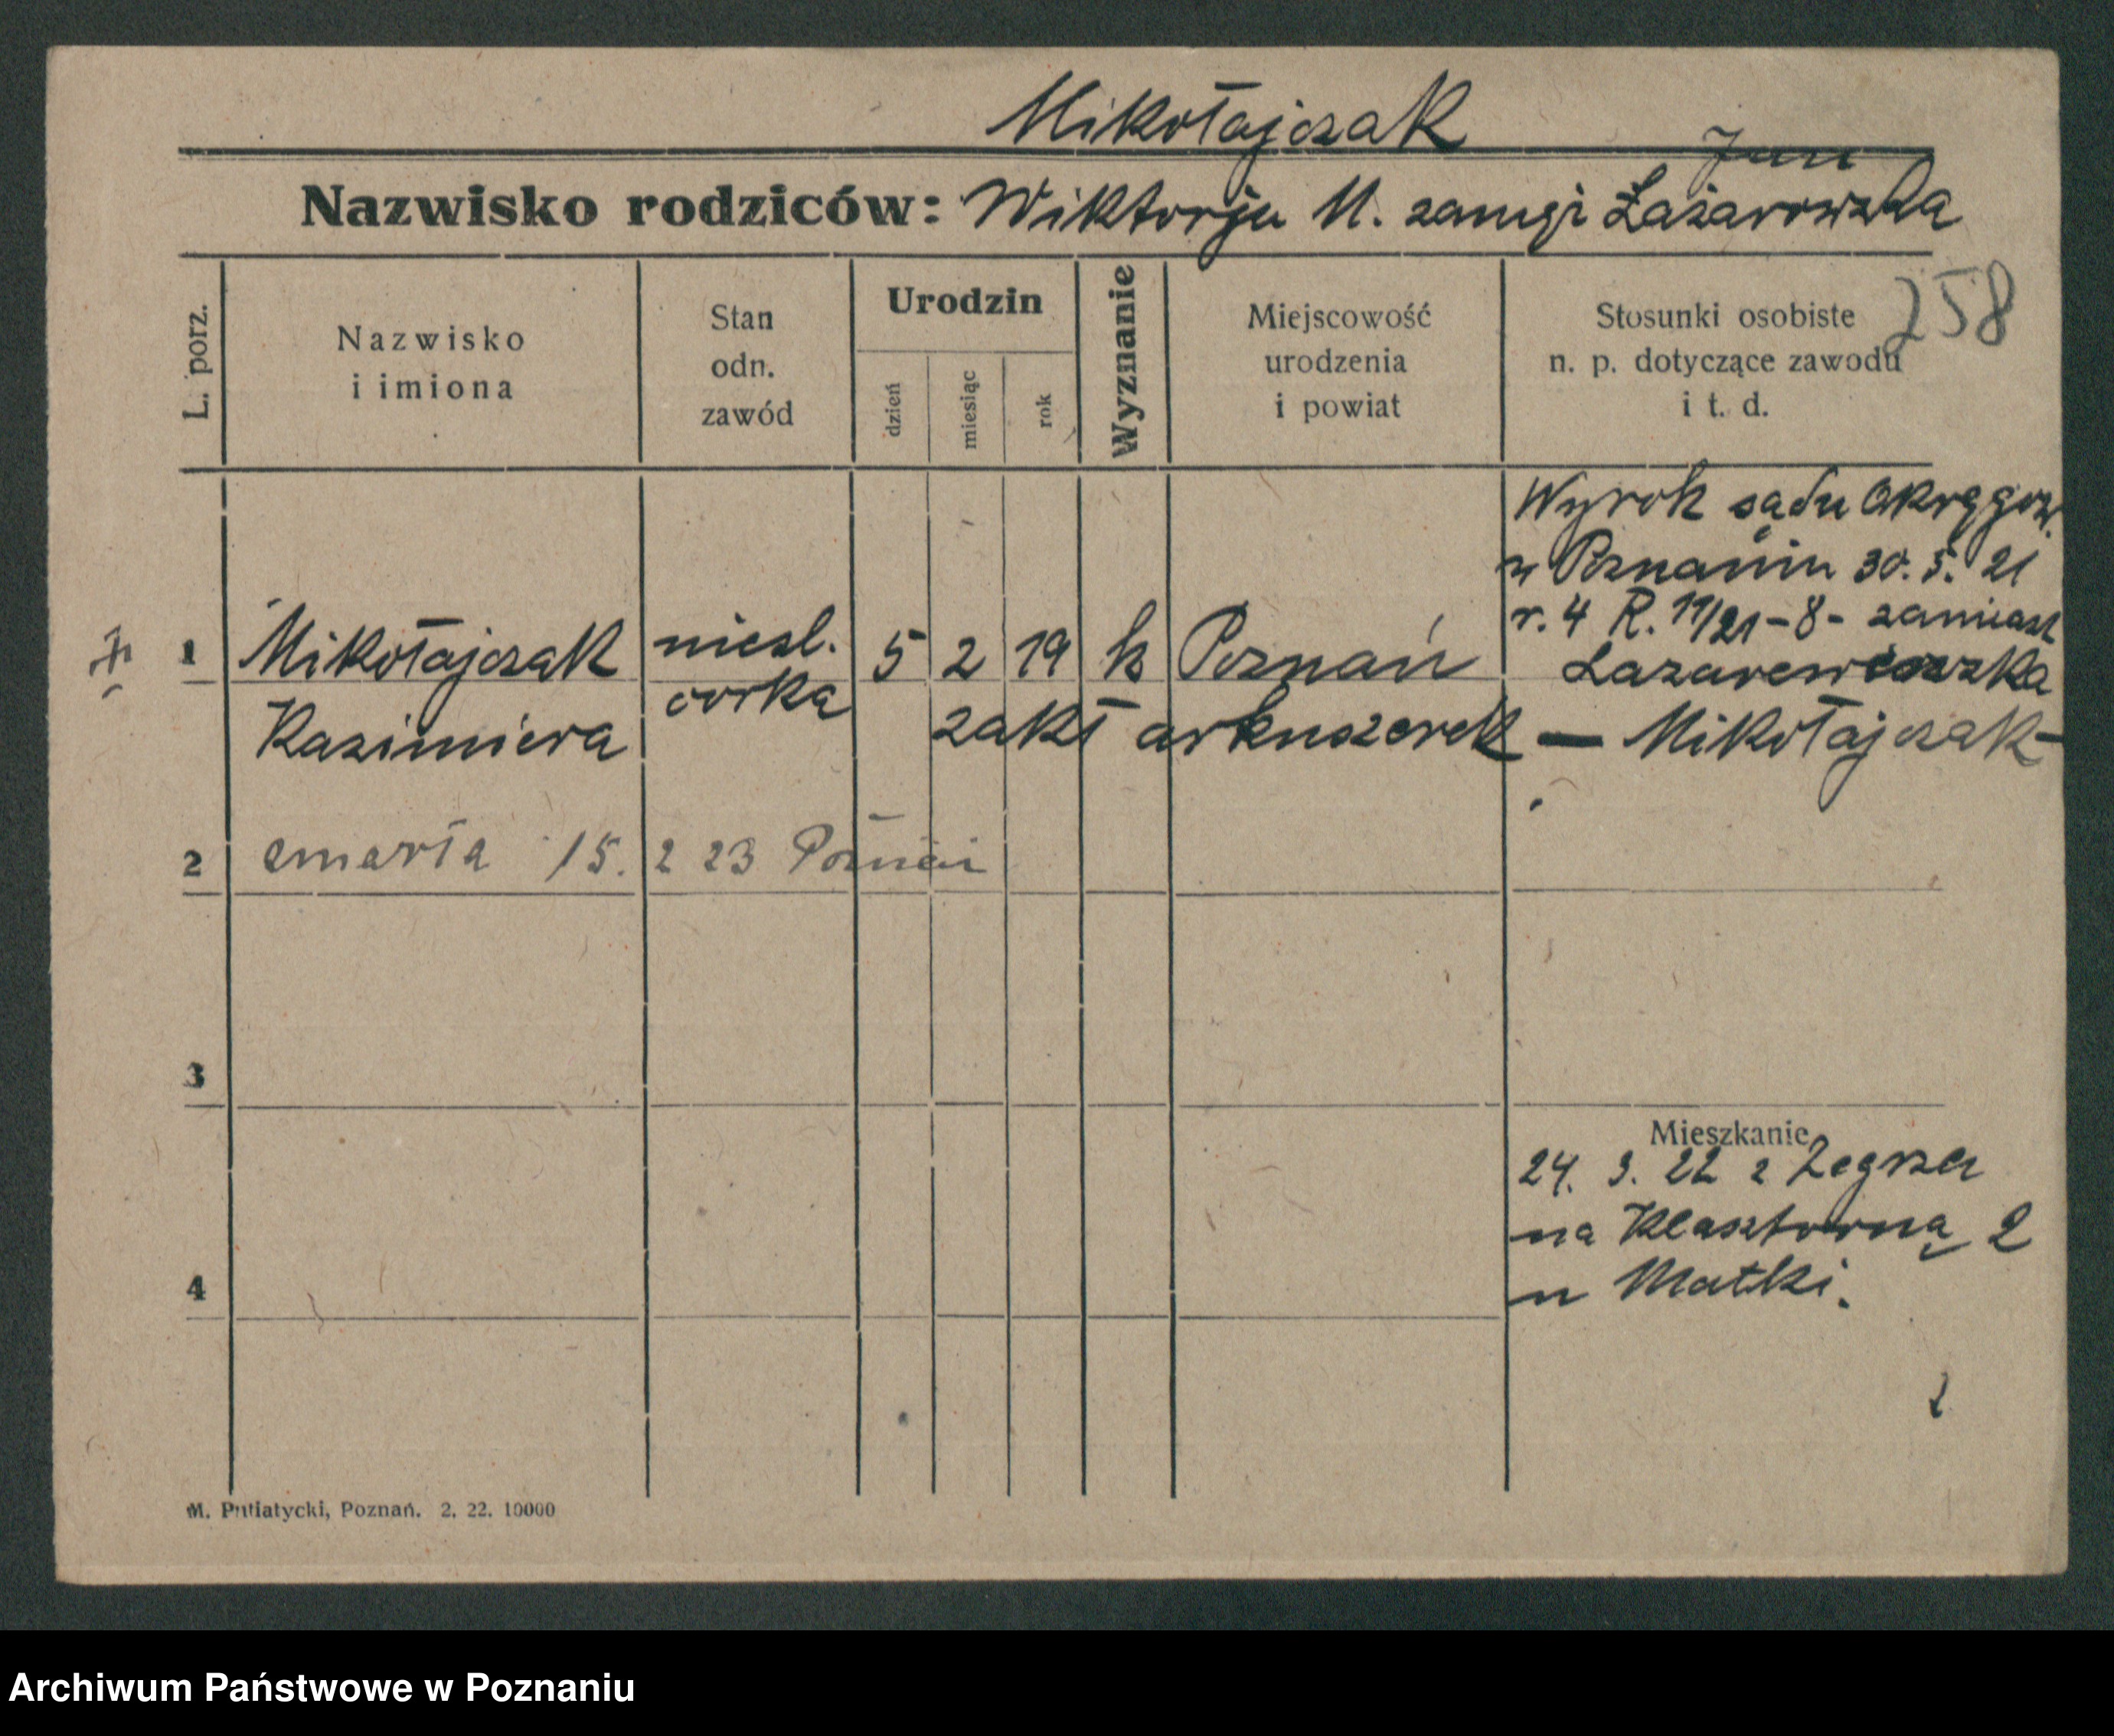 Mikołajczak
Jan
Nazwisko rodziców: Wiktorja M. zamęż Łazarowska
L. porz.
Nazwisko
i imiona
Stan
odn.
zawód
Urodzin
dzień
miesiąc
rok
Wyznanie
Miejscowość
urodzenia
i powiat
Stosunki osobiste
n. p. dotyczące zawodu
i t. d.
258
Wyrok sądu Okręgow.
w Poznaniu 30. 5. 21
r. 4 R. 11/21 - 8 - zamiast
Lazarewiczka
— Mikołajczak -
1 Mikołajczak niesl. 5 2 19 k Poznań
Kazimiera córka zakł
2 zmarła 15. 2 23 Poznań
3
Mieszkanie
24. 3. 22 z Zegrza
na Klasztorną 2
u Matki.
4
M. Putiatycki, Poznań. 2. 22. 10000
Archiwum Państwowe w Poznaniu